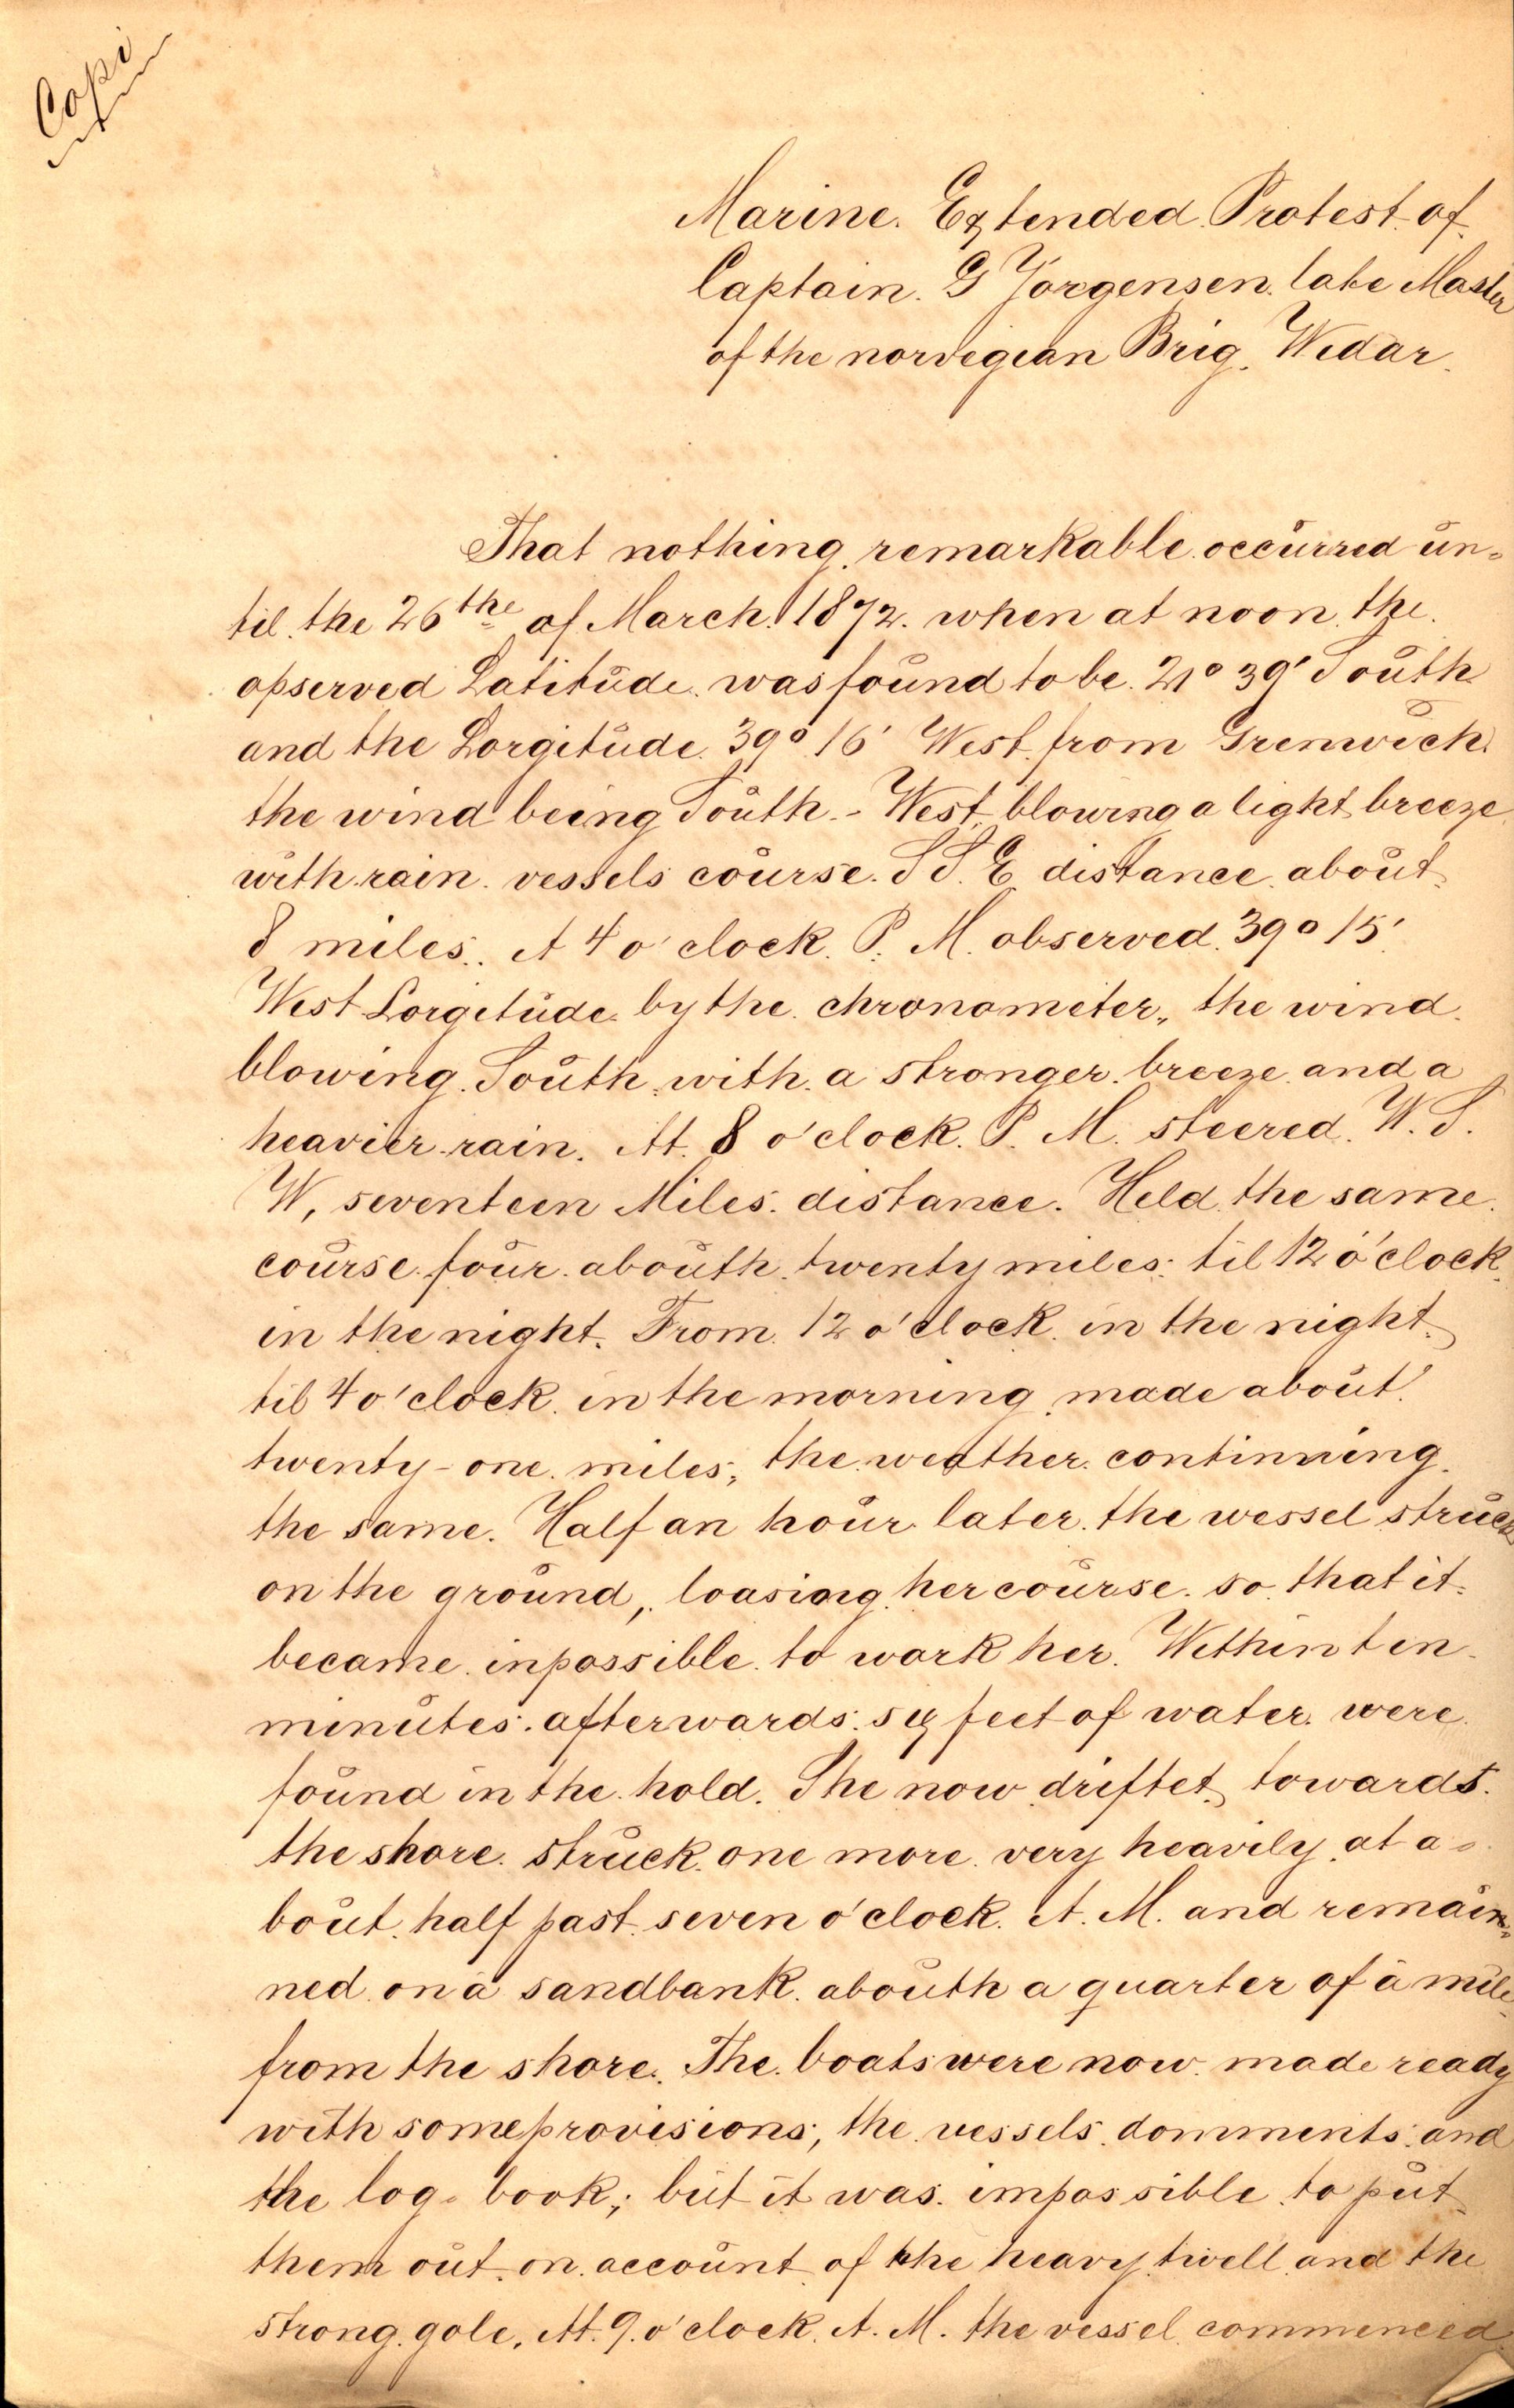 Copi
Marine. Extended Protest of
Captain. G Jörgensen. late Master
of the norvegian Brig. Widar.
That nothing remarkable occurred un-
til the 26the of March. 1872. when at noon the.
opserved Latitude. was found to be. 21° 39' South
and the Lorgitude. 39° 16' West from Grenwich.
the wind being South - West, blowing a light breeze
with rain. vessels course. S S. E distance about
8 miles. At 4 o'clock. P. M. observed. 39° 15'
West Lorgitude by the chronometer, the wind.
blowing. South, with a stronger breeze and a
heavier rain. At. 8 o'clock. P. M. steered. W. S.
W, seventeen Miles. distance. Held the same.
course four abouth twenty miles: til 12 o'clock
in the night. From 12 o'clock in the night
til 4 o'clock in the morning made about
twenty-one miles, the weather continning
the same. Half an hour later the wessel struck
on the ground, loasing her course so that it
became inpossible to work her. Within ten
minutes afterwards six feet of water were
found in the hold. She now driftet towards
the shore struck one more very heavily at a-
bout half past seven o'clock. A. M. and remain-
ned on a sandbank abouth a quarter of a mile
from the shore. The boats were now made ready
with some provisions, the vessels domments and
the log-book; but it was impossible to put
them out on account of the heavy twell and the
strong gole. At. 9. o'clock. A. M. the vessel commenced